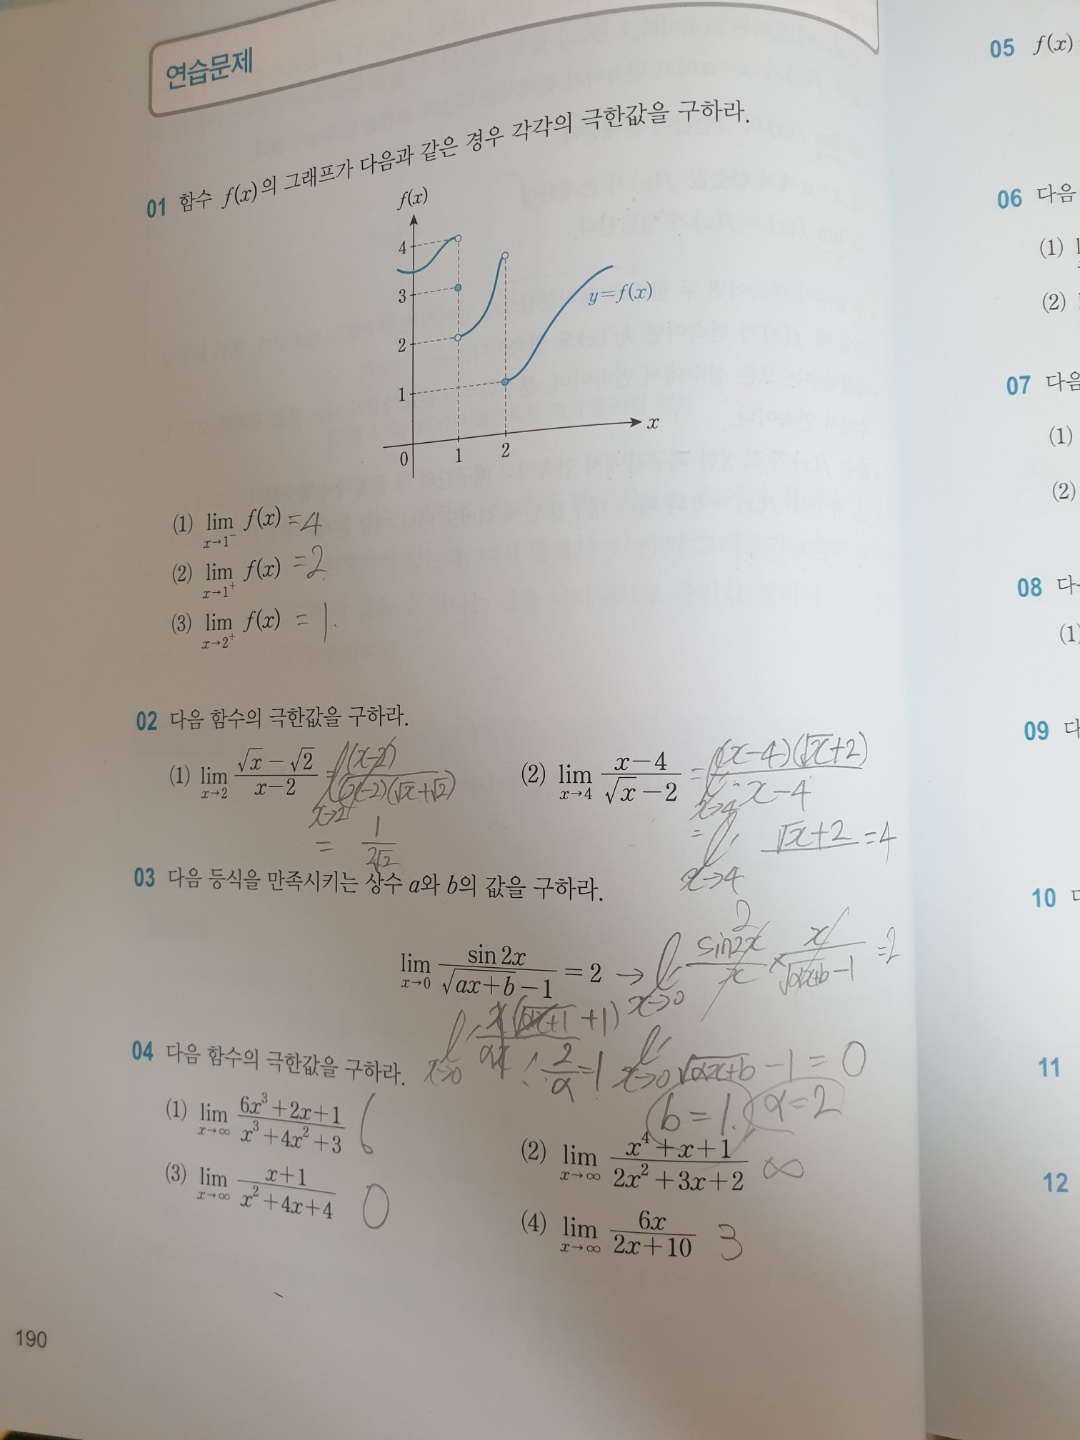 연습문제
01 함수 f(x)의 그래프가 다음과 같은 경우 각각의 극한값을 구하라.
f(x)
4
3
2
1
0 1 2
x
y=f(x)
(1) lim x→1⁻ f(x) = 4
(2) lim x→1⁺ f(x) = 2
(3) lim x→2⁺ f(x) = 1.
02 다음 함수의 극한값을 구하라.
(1) lim x→2 (√x − √2)/(x−2) = x→2 (x-2)/((x-2)(√x+√2))
= 1/(2√2)
(2) lim x→4 (x−4)/(√x −2) = x→4 (x-4)(√x+2)/(x-4)
= x→4 √x+2 = 4
03 다음 등식을 만족시키는 상수 a와 b의 값을 구하라.
lim x→0 sin 2x/(√(ax+b) −1) = 2 → x→0 sin2x/x × x/(√(ax+b) -1) = 2
x→0 x(√(ax+1) +1)/ax 2/a = 1 x→0 √(ax+b) -1 = 0
b=1. a=2
04 다음 함수의 극한값을 구하라.
(1) lim x→∞ (6x³+2x+1)/(x³+4x²+3) 6
(2) lim x→∞ (x⁴+x+1)/(2x²+3x+2) ∞
(3) lim x→∞ (x+1)/(x²+4x+4) 0
(4) lim x→∞ 6x/(2x+10) 3
190
05 f(x)
06 다음
(1)
(2)
07 다음
(1)
(2)
08 다
(1)
09
10
11
12